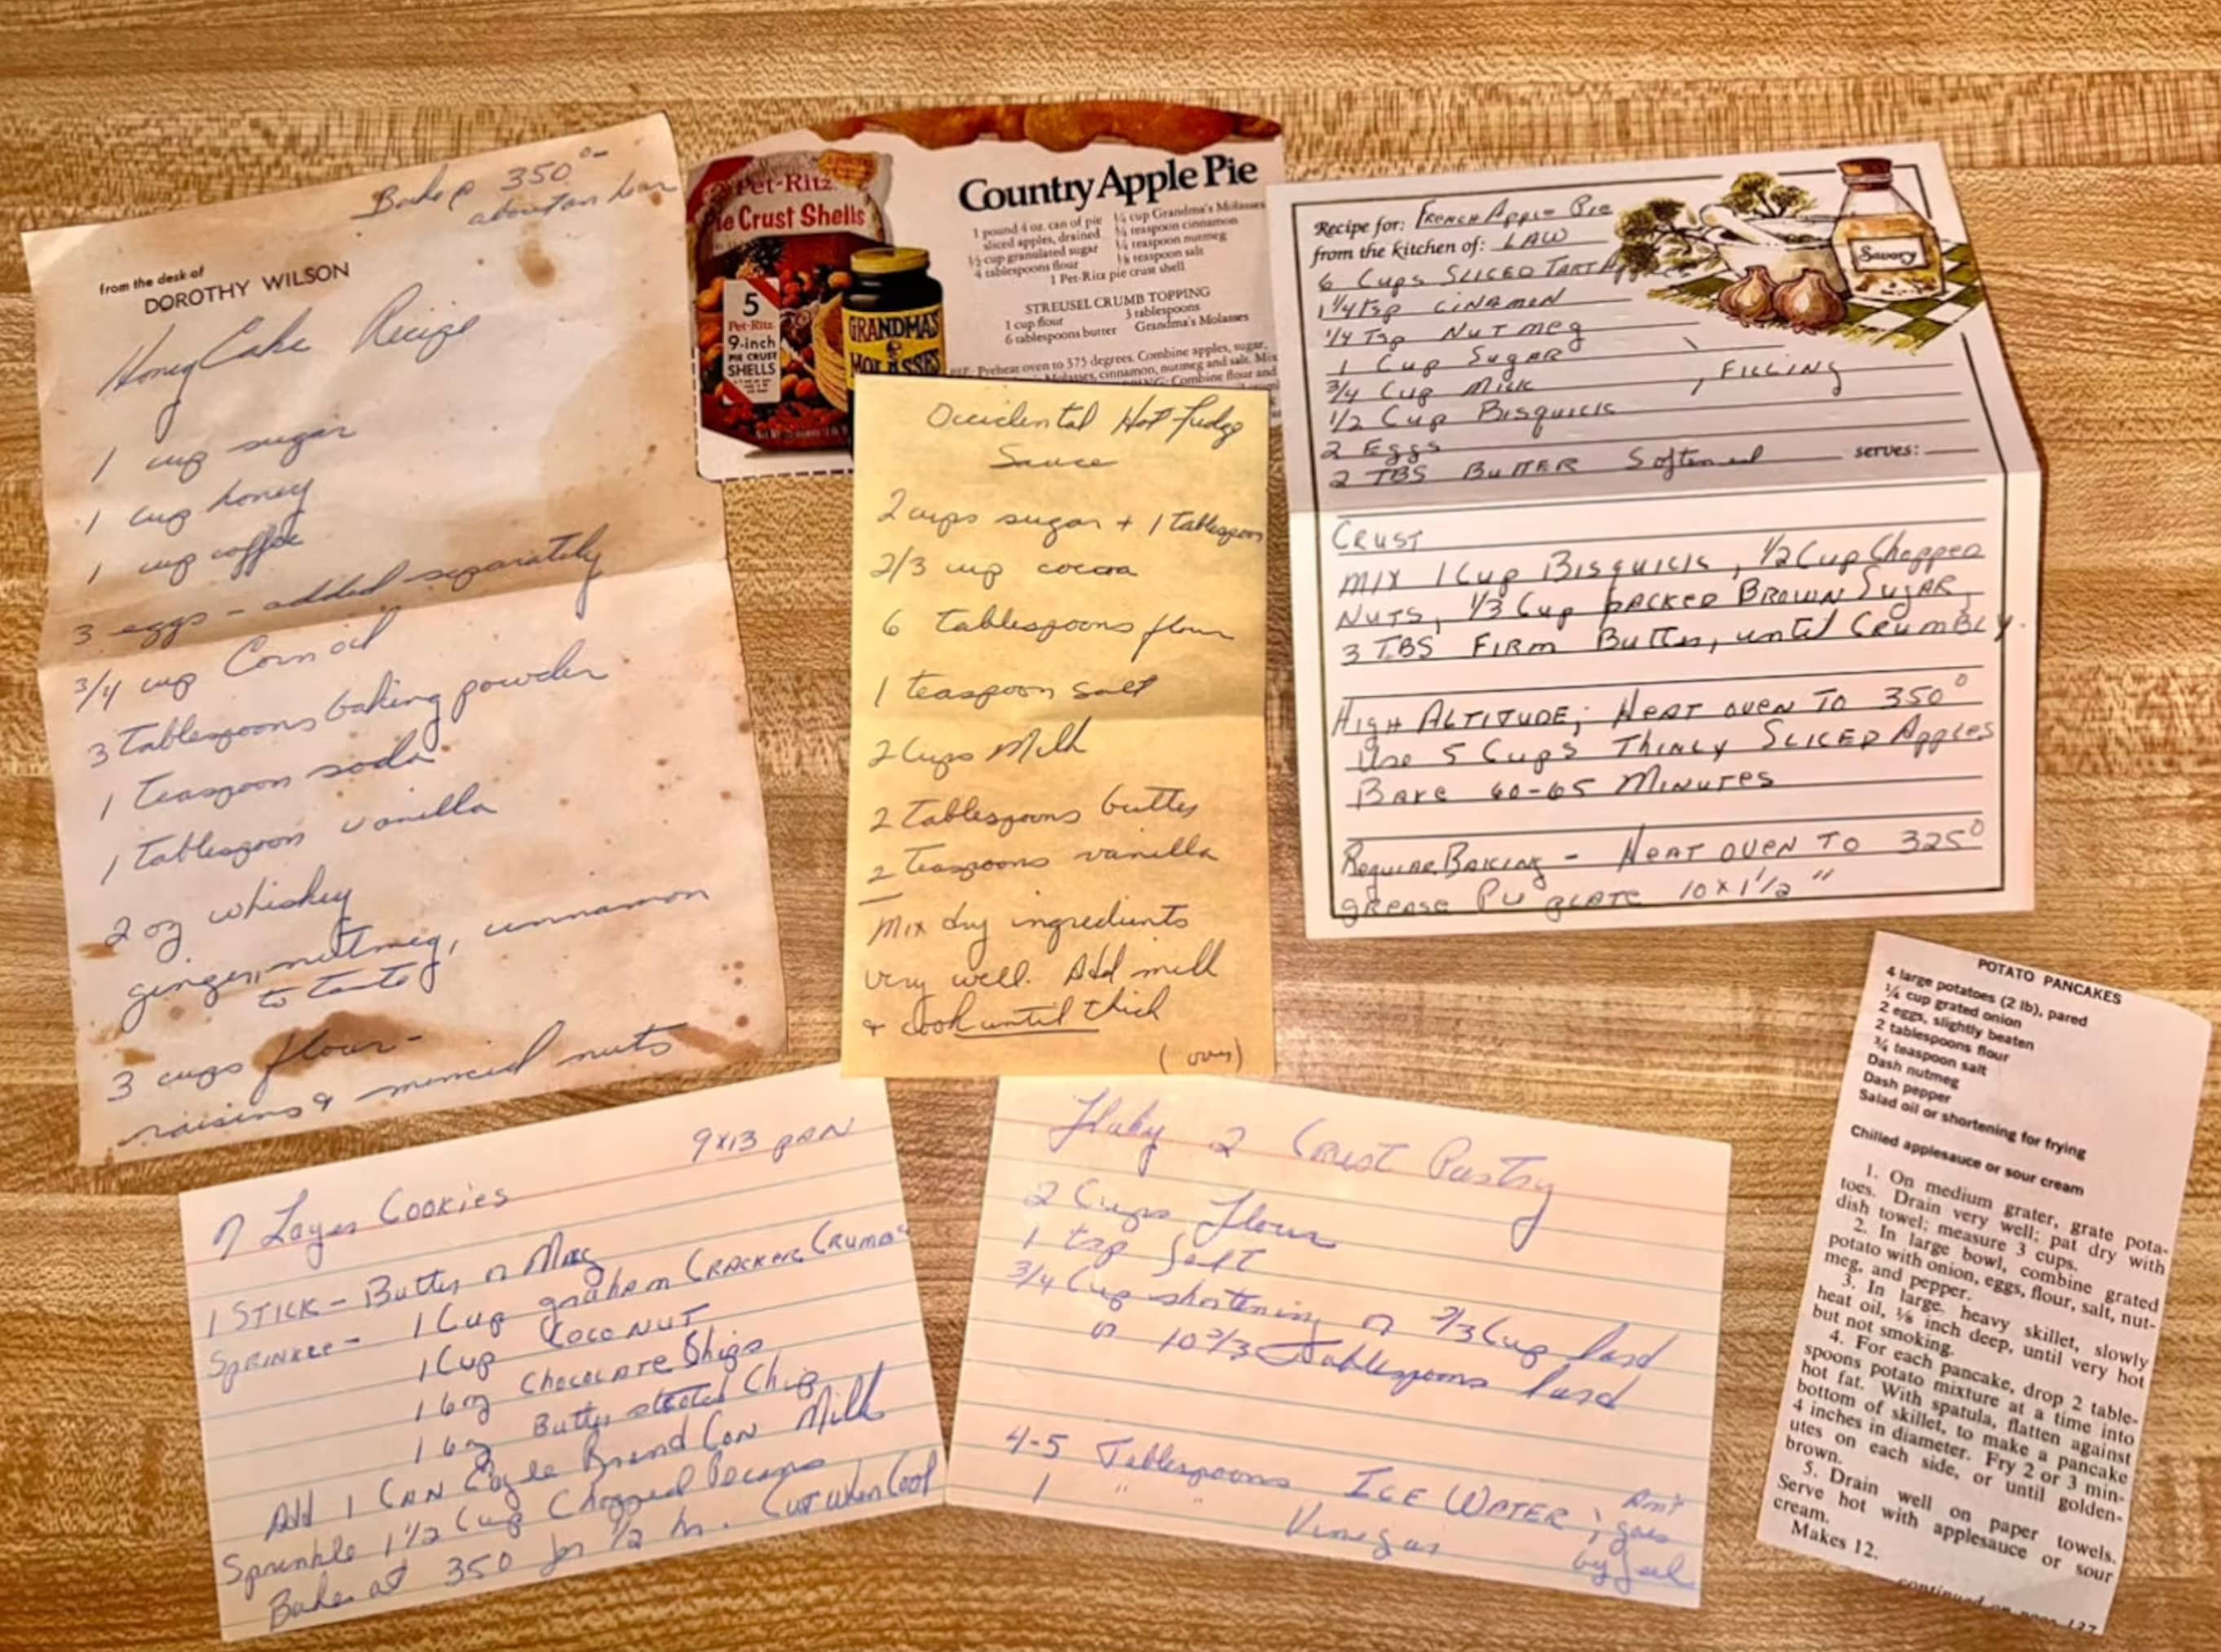 Bake @ 350°-
about an hour
from the desk of
DOROTHY WILSON
Honey Cake Recipe
1 cup sugar
1 cup honey
1 cup coffee
3 eggs - added separately
3/4 cup Corn oil
3 Tablespoons baking powder
1 Teaspoon soda
1 Tablespoon vanilla
2 oz whiskey
ginger, nutmeg, cinnamon
to taste
3 cups flour-
raisins & minced nuts
Pet-Ritz
Pie Crust Shells
5
Pet-Ritz
9-inch
PIE CRUST
SHELLS
GRANDMA'S
MOLASSES
Country Apple Pie
1 pound 4 oz. can of pie
sliced apples, drained
1/2 cup granulated sugar
4 tablespoons flour
1/4 cup Grandma's Molasses
1/4 teaspoon cinnamon
1/4 teaspoon nutmeg
1/8 teaspoon salt
1 Pet-Ritz pie crust shell
STREUSEL CRUMB TOPPING
1 cup flour
6 tablespoons butter
3 tablespoons
Grandma's Molasses
Preheat oven to 375 degrees. Combine apples, sugar,
Molasses, cinnamon, nutmeg and salt. Mix
Combine flour and
Occidental Hot Fudge
Sauce
2 cups sugar + 1 tablespoon
2/3 cup cocoa
6 tablespoons flour
1 teaspoon salt
2 Cups Milk
2 Tablespoons butter
2 Teaspoons vanilla
Mix dry ingredients
very well. Add milk
& cook until thick
(over)
Recipe for: FRENCH Apple Pie
from the kitchen of: LAW
6 Cups SLICED TART
1 1/4 Tsp CINAMON
1/4 Tsp NUTMEG
1 Cup SUGAR
3/4 Cup MILK
, FILLING
1/2 Cup BISQUICK
2 EGGS
2 TBS BUTTER Softened
serves:
Savory
CRUST
MIX 1 Cup BISQUICK, 1/2 Cup Chopped
NUTS, 1/3 Cup PACKED BROWN SUGAR,
3 TBS FIRM Butter, until CRUMBLY.
HIGH ALTITUDE; HEAT OVEN TO 350°
Use 5 Cups THINLY SLICED Apples
BAKE 60-65 MINUTES
REGULAR BAKING - HEAT OVEN TO 325°
grease PIE PLATE 10 x 1 1/2"
9x13 PAN
7 Layer COOKIES
1 STICK - Butter or Marg
SPRINKLE - 1 Cup graham CRACKER CRUMBS
1 Cup COCONUT
1 6 oz CHOCOLATE Chips
1 6 oz Butter Chip
Add 1 CAN Eagle Brand CON Milk
Sprinkle 1 1/2 Cup Chopped Pecans
Bake at 350 for 1/2 hr. CUT WHEN Cool
Flaky 2 Crust Pastry
2 Cups Flour
1 tsp Salt
3/4 Cup shortening or 2/3 Cup lard
or 10 2/3 Tablespoons lard
4-5 Tablespoons ICE WATER;
1 " " Vinegar
by feel
POTATO PANCAKES
4 large potatoes (2 lb), pared
1/4 cup grated onion
2 eggs, slightly beaten
2 tablespoons flour
3/4 teaspoon salt
Dash nutmeg
Dash pepper
Salad oil or shortening for frying
Chilled applesauce or sour cream
1. On medium grater, grate pota-
toes. Drain very well; pat dry with
dish towel; measure 3 cups.
2. In large bowl, combine grated
potato with onion, eggs, flour, salt, nut-
meg, and pepper.
3. In large, heavy skillet, slowly
heat oil, 1/8 inch deep, until very hot
but not smoking.
4. For each pancake, drop 2 table-
spoons potato mixture at a time into
hot fat. With spatula, flatten against
bottom of skillet, to make a pancake
4 inches in diameter. Fry 2 or 3 min-
utes on each side, or until golden-
brown.
5. Drain well on paper towels.
Serve hot with applesauce or sour
cream.
Makes 12.
continued on page 137